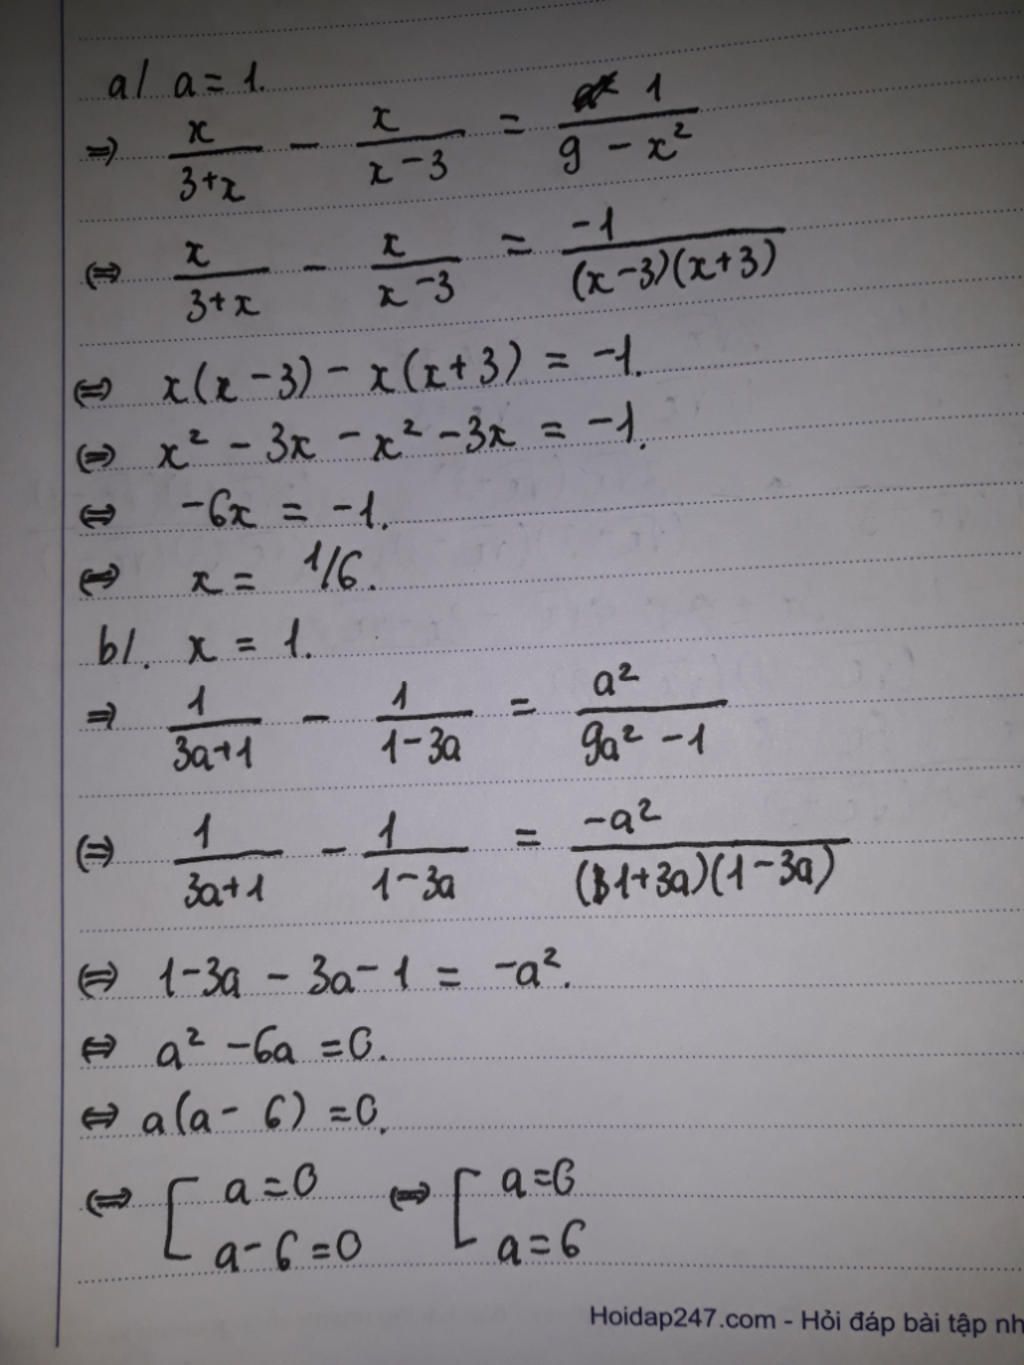 a/ a = 1.
⇒ x/(3+x) − x/(x−3) = 1/(9 − x²)
⇔ x/(3+x) − x/(x−3) = −1/((x−3)(x+3))
⇔ x(x−3) − x(x+3) = −1.
⇔ x² − 3x − x² − 3x = −1.
⇔ −6x = −1.
⇔ x = 1/6.
b/. x = 1.
⇒ 1/(3a+1) − 1/(1−3a) = a²/(9a² − 1)
⇔ 1/(3a+1) − 1/(1−3a) = −a²/((1+3a)(1−3a))
⇔ 1−3a − 3a−1 = −a².
⇔ a² − 6a = 0.
⇔ a(a − 6) = 0.
⇔ [ a = 0 ⇔ [ a = 0
a − 6 = 0 a = 6
Hoidap247.com - Hỏi đáp bài tập nh